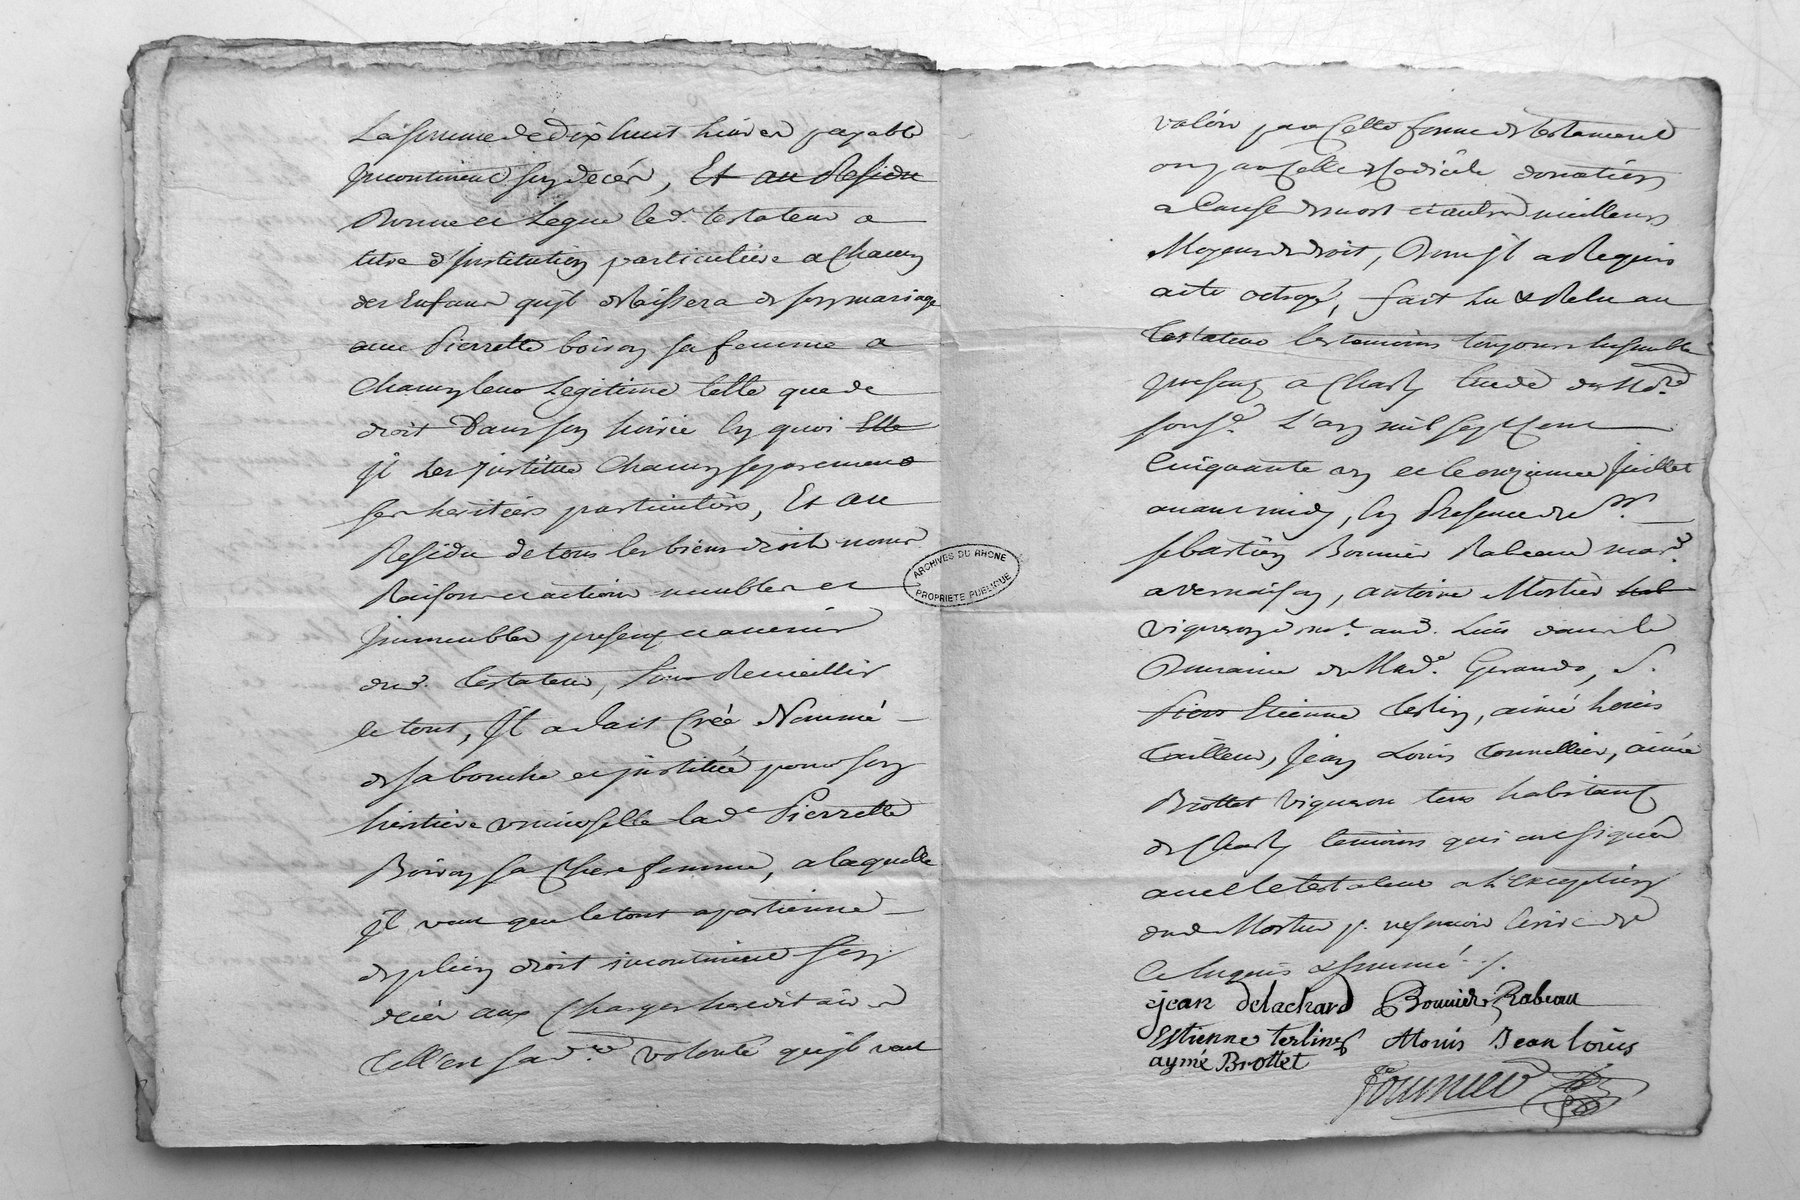 La somme de dix huit livres payable
Incontinent son deces, Et au Residu
Donne et Legue led. testateur a
titre d'Institution particuliere a Chacun
des Enfans qu'jl delaissera de son mariage
avec Pierrette boiron sa femme a
Chacun leur Legitime telle que de
droit Dans son hoirie En quoi Elle
jl les jnstitue Chacun separement
ses heritiers particuliers, Et au
Residu de tous les biens droits noms
Raisons et actions meubles et
Immeubles presents et avenir
dud. testateur, Pour Recueillir
le tout, Jl a fait Créé Nommé
de sa bouche et jnstitué pour son
heritiere universelle lad.e Pierrette
Boiron sa Chere femme, a laquelle
jl veut que le tout apartienne
de plein droit incontinent son
deces aux Charges hereditaires
Telle est sa d.re volonté qu'jl veut
valoir par Celle forme de testament
ou par Celle de Codicile donation
a Cause de mort et autres meilleurs
Moyens de droit, Dont Jl a Requis
acte octroyé, fait Lu & Relu au
testateur les temoins toujours Ensemble
presens a Charly Etude du No.re
sous.é L'an mil sept Cent
Cinquante un et le onzieme Juillet
avant midy, En Presence de Sr.
sebastien Bonnier Rabeau mar.d
a vernaison, antoine Mortier hab
vigneron dans le
Domaine de Mad.e Gerando, S.
Piere Etienne Terlin, aimé
tailleur, Jean Louis, aimé
Brottet vigneron tous habitants
de Charly temoins qui ont signés
avec le testateur a L'exception
dud Mortier p. ne savoir Ecrire de
Ce Enquis & sommé ./.
jean delachard Bonnier Rabeau
Estienne terlin Jean Loüis
aymé Brottet
Fournier
ARCHIVES DU RHONE
PROPRIETE PUBLIQUE